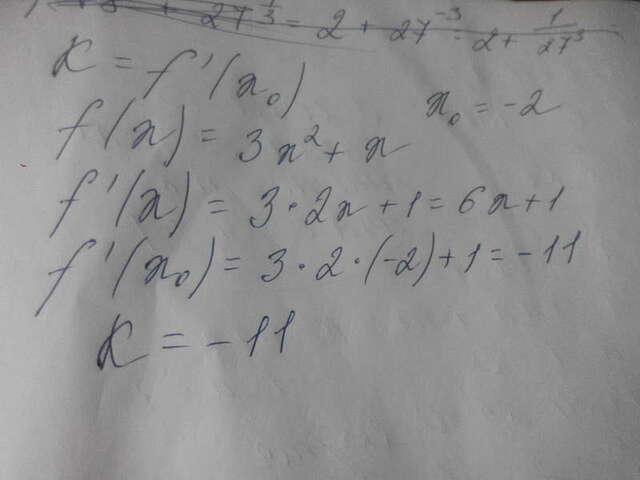 27^{1/3} = 2 + 27^{-3} = 2 + 1/27^3
K = f'(x₀)
f(x) = 3x² + x x₀ = -2
f'(x) = 3·2x + 1 = 6x + 1
f'(x₀) = 3·2·(-2) + 1 = -11
K = -11